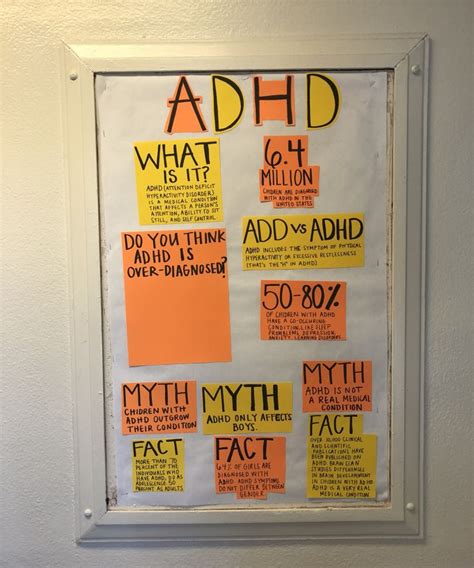 ADHD
WHAT
IS IT?
ADHD (ATTENTION DEFICIT
HYPERACTIVITY DISORDER)
IS A MEDICAL CONDITION
THAT AFFECTS A PERSON'S
ATTENTION, ABILITY TO SIT
STILL, AND SELF CONTROL.
6.4
MILLION
CHILDREN ARE DIAGNOSED
WITH ADHD IN THE
UNITED STATES
DO YOU THINK
ADHD IS
OVER-DIAGNOSED?
ADD VS ADHD
ADHD INCLUDES THE SYMPTOM OF PHYSICAL
HYPERACTIVITY OR EXCESSIVE RESTLESSNESS
(THAT'S THE "H" IN ADHD)
50-80%
OF CHILDREN WITH ADHD
HAVE A CO-OCCURING
CONDITION, LIKE SLEEP
PROBLEMS, DEPRESSION,
ANXIETY, LEARNING DISORDERS
MYTH
CHIDREN WITH
ADHD OUTGROW
THEIR CONDITION
MYTH
ADHD ONLY AFFECTS
BOYS.
MYTH
ADHD IS NOT
A REAL MEDICAL
CONDITION
FACT
MORE THAN 70
PERCENT OF THE
INDIVIDUALS WHO
HAVE ADHD, DO AS
ADOLESCENCE 50
PERCENT AS ADULTS.
FACT
OF GIRLS ARE
DIAGNOSED WITH
ADHD. ADHD SYMPTOMS
DO NOT DIFFER BETWEEN
GENDER.
FACT
OVER 10,000 CLINICAL
AND SCIENTIFIC
PUBLICATIONS HAVE
BEEN PUBLISHED ON
ADHD. BRAIN SCAN
STUDIES DIFFERENCES
IN BRAIN DEVELOPMENT
IN CHILDREN WITH ADHD
ADHD IS A VERY REAL
MEDICAL CONDITION